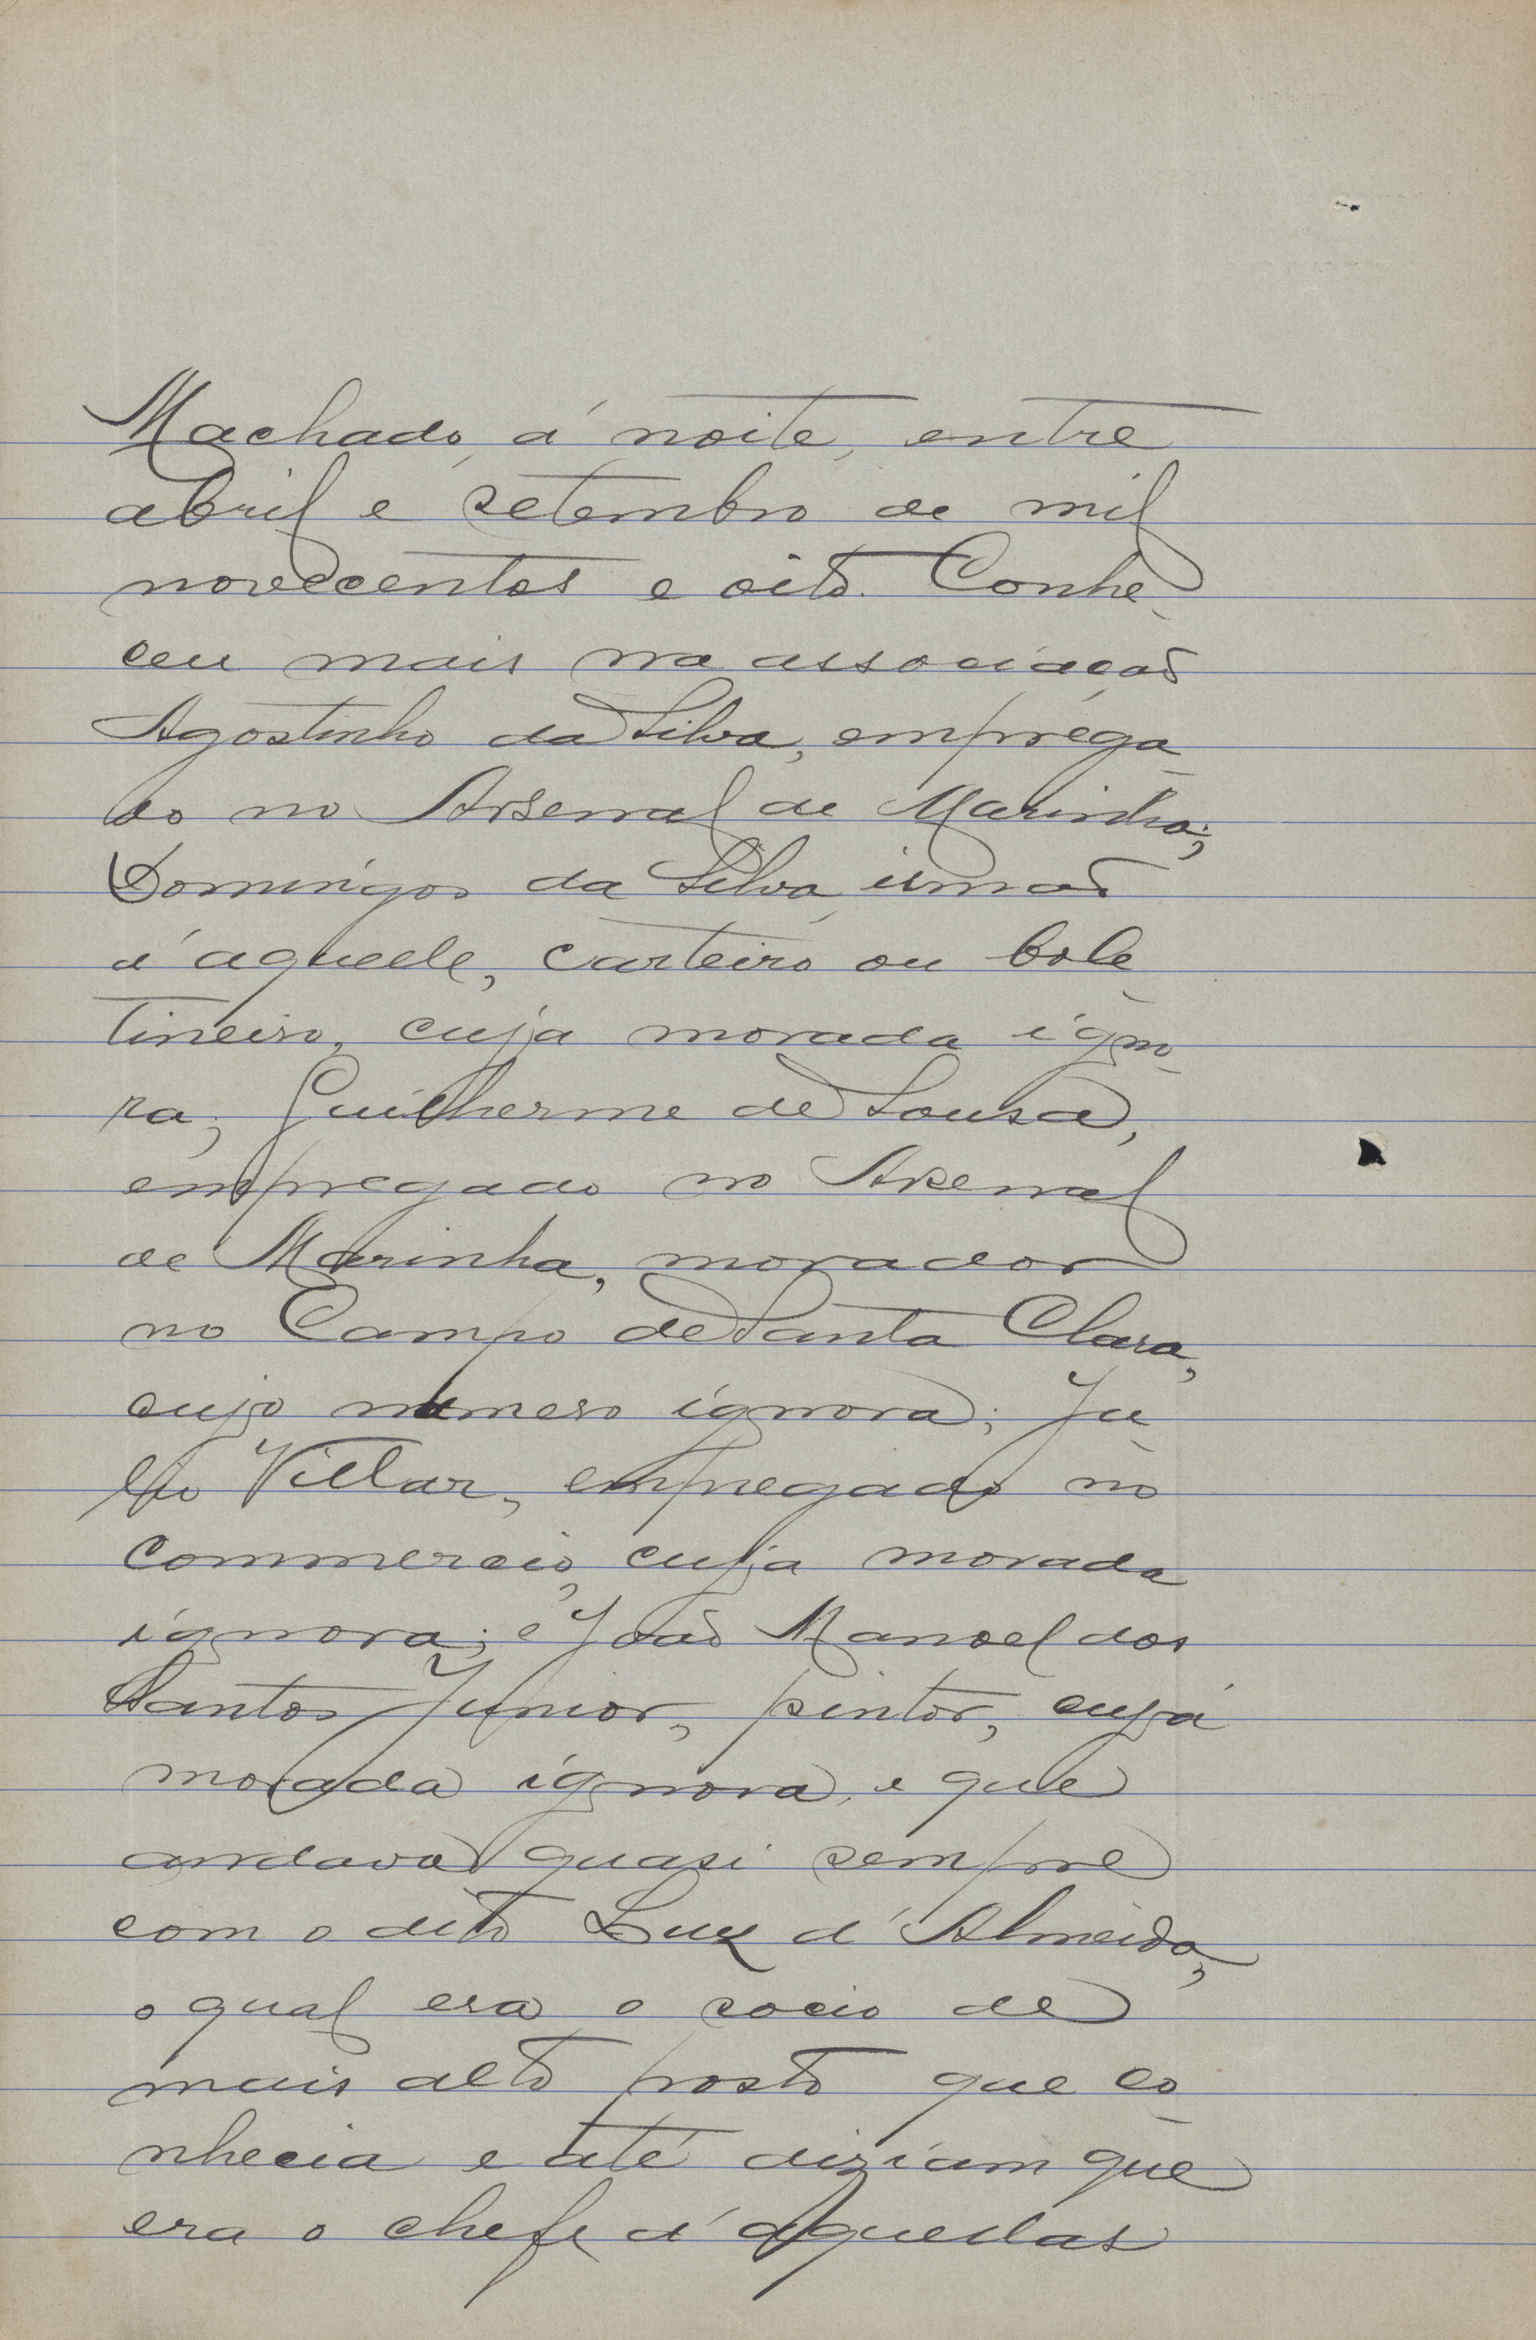 Machado, á noite, entre
abril e setembro de mil
novecentos e oito. Conhe-
ceu mais na associação
Agostinho da Silva, emprega-
do no Arsenal de Marinha;
Domingos da Silva, irmão
d'aquelle, carteiro ou bole-
tineiro, cuja morada igno-
ra; Guilherme de Sousa,
empregado no Arsenal
de Marinha, morador
no Campo de Santa Clara,
cujo numero ignora; Ju-
lio Villar, empregado no
commercio, cuja morada
ignora; e João Manoel dos
Santos Junior, pintor, cuja
morada ignora, e que
andava quasi sempre
com o dito Luz d'Almeida,
o qual era o socio de
mais alto posto que co-
nhecia e até diziam que
era o chefe d'aquellas